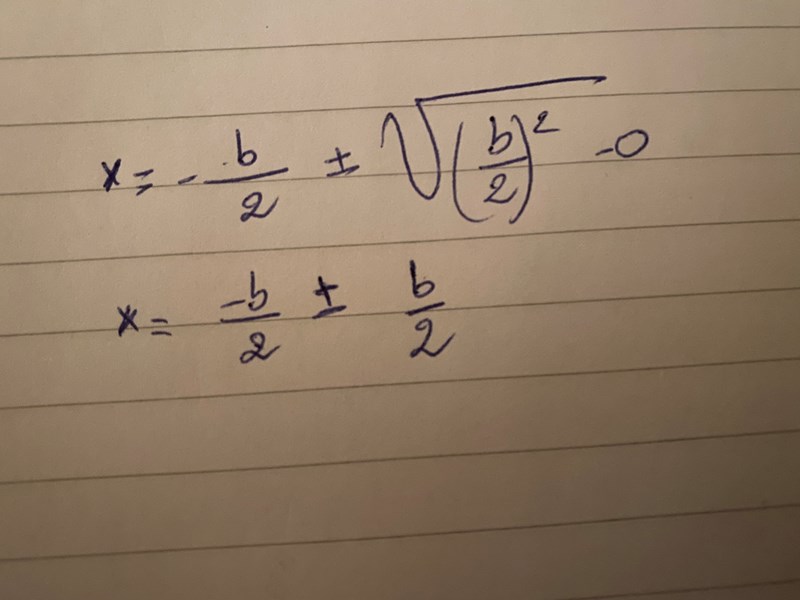 x = - b/2 ± √(b/2)² - 0
x = -b/2 ± b/2